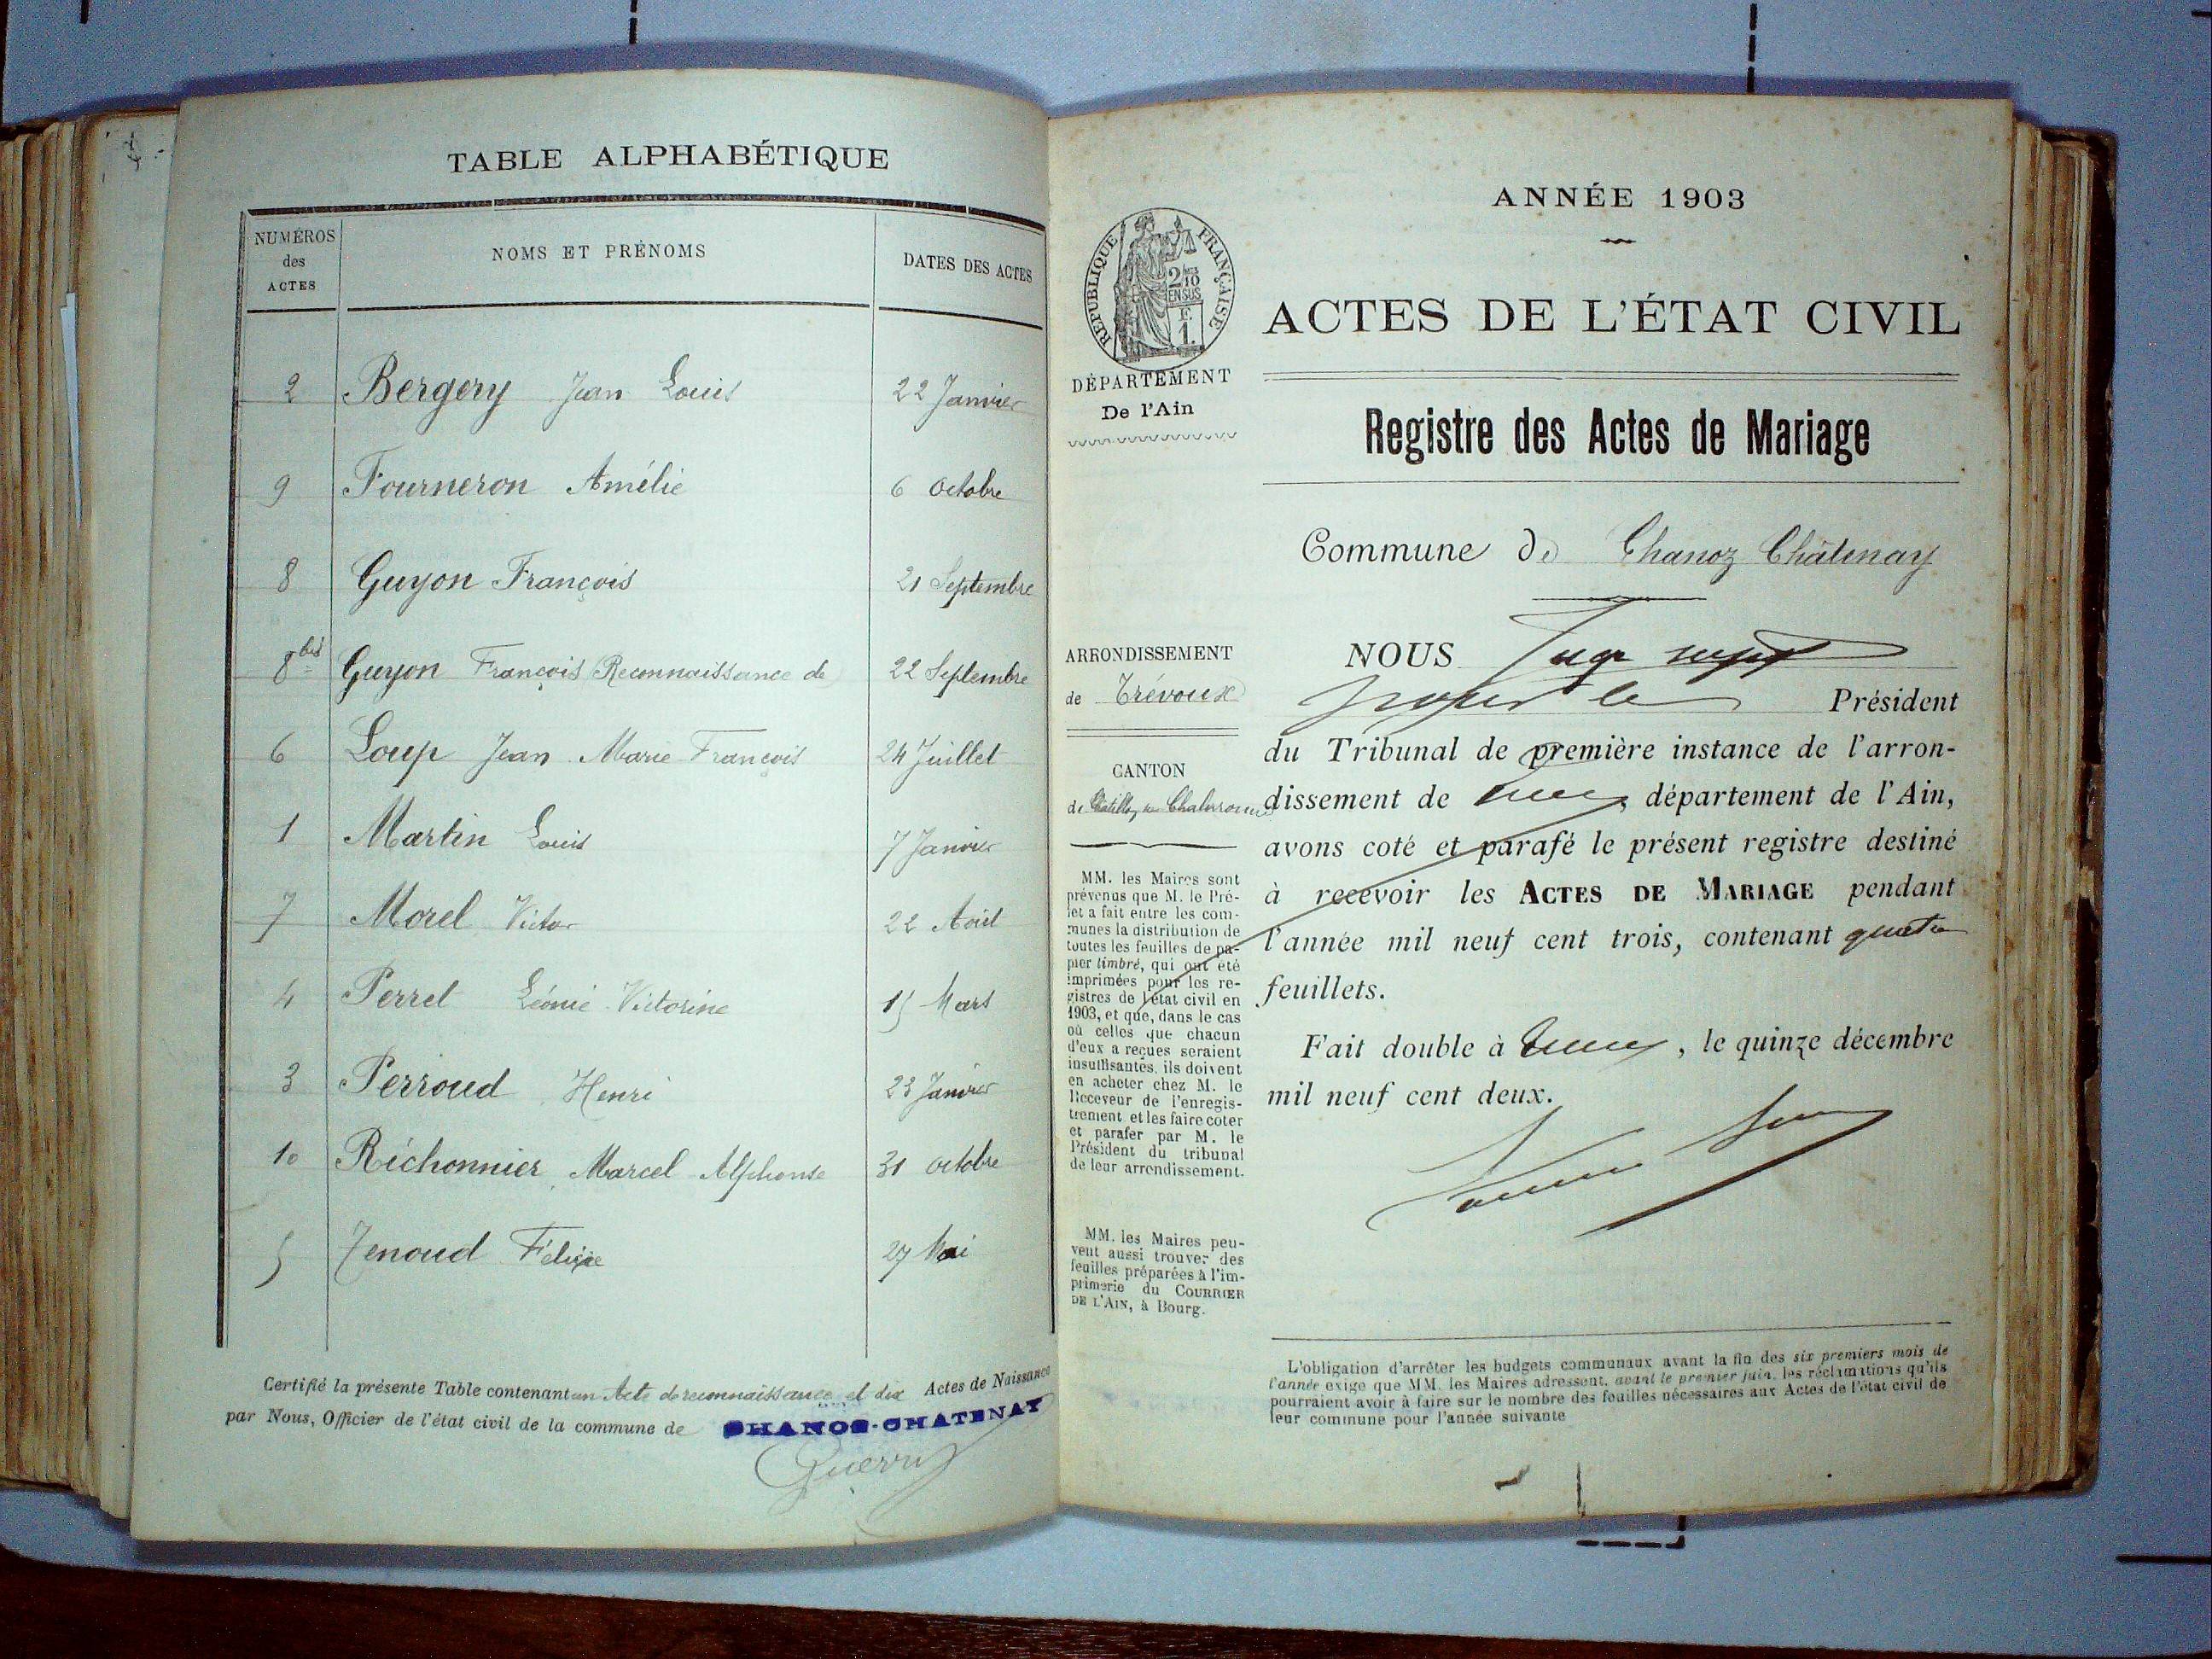 TABLE ALPHABÉTIQUE
NUMÉROS des ACTES
NOMS ET PRÉNOMS
DATES DES ACTES
2 Bergery Jean Louis 22 Janvier
9 Fourneron Amélie 6 Octobre
8 Guyon François 21 Septembre
8 bis Guyon François (Reconnaissance de) 22 Septembre
6 Loup Jean Marie François 24 Juillet
1 Martin Louis 7 Janvier
7 Morel Victor 22 Août
4 Perret Léonie Victorine 15 Mars
3 Perroud Henri 23 Janvier
10 Réchonnier Marcel Alphonse 31 Octobre
5 Tenoud 27 Mai
Certifié la présente Table contenant un Acte de reconnaissance et dix Actes de Naissance
par Nous, Officier de l'état civil de la commune de CHANOZ-CHATENAY
RÉPUBLIQUE FRANÇAISE
2/10
EN SUS
F.
1.
DÉPARTEMENT
De l'Ain
ARRONDISSEMENT
de Trévoux
CANTON
de Châtillon sur Chalaronne
MM. les Maires sont
prévenus que M. le Pré-
fet a fait entre les com-
munes la distribution de
toutes les feuilles de pa-
pier timbré, qui ont été
imprimées pour les re-
gistres de l'état civil en
1903, et que, dans le cas
où celles que chacun
d'eux a reçues seraient
insuffisantes, ils doivent
en acheter chez M. le
Receveur de l'enregis-
trement et les faire coter
et parafer par M. le
Président du tribunal
de leur arrondissement.
MM. les Maires peu-
vent aussi trouver des
feuilles préparées à l'im-
primerie du COURRIER
DE L'AIN, à Bourg.
ANNÉE 1903
ACTES DE L'ÉTAT CIVIL
Registre des Actes de Mariage
Commune de Chanoz Châtenay
NOUS Juge
pour le Président
du Tribunal de première instance de l'arron-
dissement de , département de l'Ain,
avons coté et parafé le présent registre destiné
à recevoir les ACTES DE MARIAGE pendant
l'année mil neuf cent trois, contenant quatre
feuillets.
Fait double à , le quinze décembre
mil neuf cent deux.
L'obligation d'arrêter les budgets communaux avant la fin des six premiers mois de
l'année exige que MM. les Maires adressent, avant le premier juin, les réclamations qu'ils
pourraient avoir à faire sur le nombre des feuilles nécessaires aux Actes de l'état civil de
leur commune pour l'année suivante